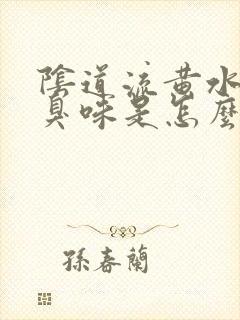 陰道流黄水
臭味是怎麼
孫春蘭